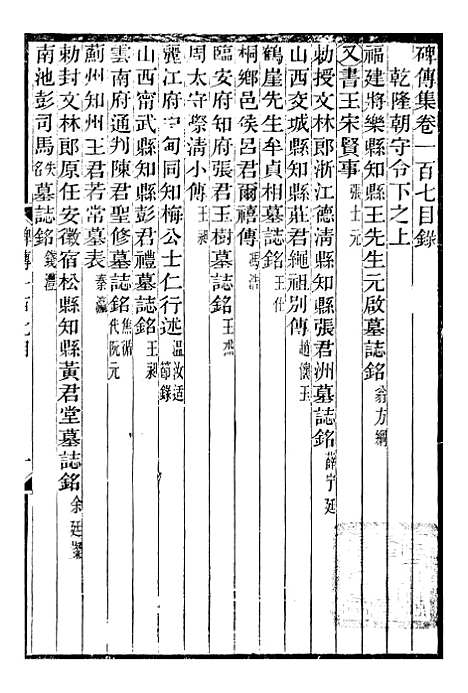 碑傳集卷一百七目錄
乾隆朝守令下之上
福建將樂縣知縣王先生元啟墓誌銘 翁方綱
又書王宋賢事 張士元
勅授文林郎浙江德清縣知縣張君洲墓誌銘 薛宁廷
山西交城縣知縣莊君繩祖別傳 趙懷玉
鶴崖先生牟貞相墓誌銘 王仕
桐鄉邑侯呂君爾禧傳 馮浩
臨安府知府張君玉樹墓誌銘 王杰
周太守際清小傳 王昶
麗江府中甸同知梅公士仁行述 溫汝适 節錄
山西甯武縣知縣彭君禮墓誌銘 王昶
雲南府通判陳君聖修墓誌銘 焦循 代阮元
薊州知州王君若常墓表 秦瀛
勅封文林郎原任安徽宿松縣知縣黃君堂墓誌銘 余廷燦
南池彭司馬 失名 墓誌銘 錢灃
碑傳一百七目
一